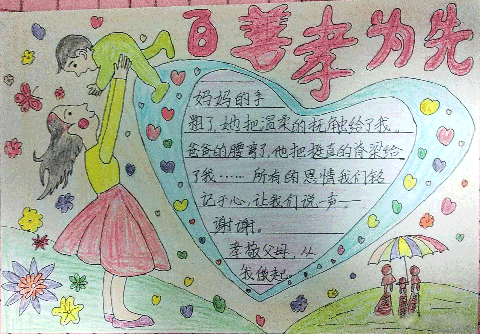 百善孝为先
妈妈的手
粗了,她把温柔的抚触给了我。
爸爸的腰弯了,他把挺直的脊梁给
了我……所有的恩情我们轻
记于心,让我们说一声——
谢谢。
孝敬父母,从
我做起